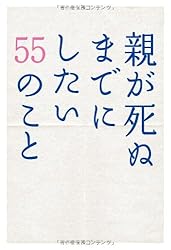 「著作権保護コンテンツ」
親が死ぬ
までに
したい
55のこと
「著作権保護コンテンツ」